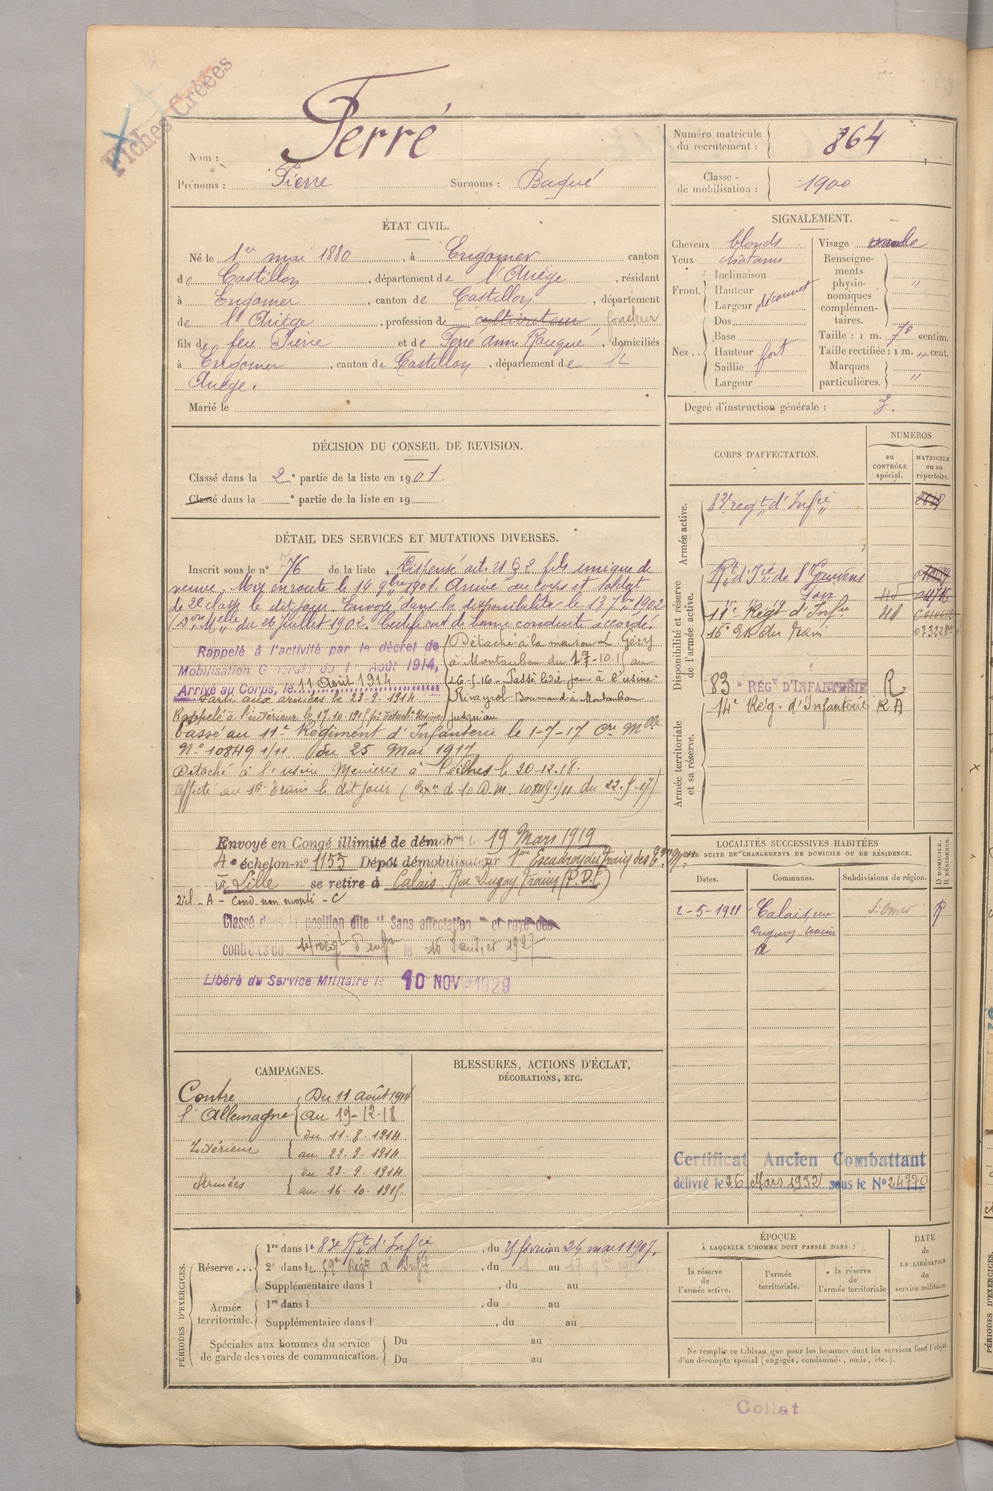 Fiches Créées
Nom : Ferré
Prénoms : Pierre Surnoms : Bagué
Numéro matricule du recrutement : 864
Classe de mobilisation : 1900
ÉTAT CIVIL.
Né le 1er mai 1880, à Engomer canton
de Castillon, département de l'Ariège, résidant
à Engomer, canton de Castillon, département
de l'Ariège, profession de cultivateur fondeur
fils de feu Pierre et de Ferré Anne Rouqué, domiciliés
à Engomer, canton de Castillon, département de l'
Ariège.
Marié le
SIGNALEMENT.
Cheveux blonds
Yeux châtains
Front. Inclinaison
Hauteur
Largeur découvert
Nez .. Dos
Base
Hauteur fort
Saillie
Largeur
Visage ovale
Renseignements physionomiques complémentaires. "
Taille : 1 m. 70 centim.
Taille rectifiée : 1 m. " cent.
Marques particulières. "
Degré d'instruction générale : 3.
DÉCISION DU CONSEIL DE REVISION.
Classé dans la 2e partie de la liste en 1901.
Classé dans la e partie de la liste en 19
DÉTAIL DES SERVICES ET MUTATIONS DIVERSES.
Inscrit sous le n° 76 de la liste. Dispensé art. 21 § 2 fils unique de
veuve. Mis en route le 14 9bre 1901. Arrivé au corps et soldat
de 2e classe le dit jour. Envoyé dans la disponibilité le 1902
du 26 juillet 1902. Certificat de bonne conduite accordé.
Rappelé à l'activité par le décret de
Mobilisation Générale du 1er Août 1914,
Arrivé au Corps, le 11 Août 1914
Parti aux armées le 23-9-1914
Rappelé à l'intérieur le 17.10.1915
Détaché à la maison L. Géry
à Montauban du 17-10-15 au
26-5-16 - Passé le dit jour à l'usine
Rivayrol Bournaud à Montauban
jusqu'au
Passé au 11e Régiment d'Infanterie le 1-7-17 Cr. Melle
N° 10849 1/11 du 25 Mai 1917
Détaché à l'usine Menieres à le 20.12.18.
Affecté au 16e Train le dit jour (de 10 D.M. 10849 1/11 du 22.5.17)
Envoyé en Congé illimité de démobon le 19 Mars 1919
4e échelon n° 1155 Dépôt démobilisateur 1er Escadron du Train des Eq.
à Lille se retire à Calais, Rue Duguay Trouin (P.D.C)
- A - Cond. non monté - C
Classé dans la position dite "Sans affectation" et rayé des
contrôles du le 15 Janvier 1927
Libéré du Service Militaire le 10 NOV 1929
CORPS D'AFFECTATION.
NUMÉROS
au CONTRÔLE spécial.
MATRICULE ou au répertoire.
Armée active.
83e regt d'Infie
Disponibilité et réserve de l'armée active.
Rt d'Ie de St Gaudens
11e Régt d'Infie
16e Esc du Train
Armée territoriale et sa réserve.
83e RÉGT D'INFANTERIE R
14e Rég. d'Infanterie RA
LOCALITÉS SUCCESSIVES HABITÉES
PAR SUITE DE CHANGEMENTS DE DOMICILE OU DE RÉSIDENCE.
Dates. Communes. Subdivisions de région. D DOMICILE. R RÉSIDENCE.
2-5-1911 Calais, rue St Omer R
Duguay Trouin
12
CAMPAGNES.
Contre
l'Allemagne
Du 11 août 1914
au 19-12-18
Intérieur
du 11-8-1914
au 22-9-1914
Armées
du 23-9-1914
au 16-10-1915
BLESSURES, ACTIONS D'ÉCLAT,
DÉCORATIONS, ETC.
Certificat Ancien Combattant
délivré le 26 Mars 1932 sous le N° 24770
PÉRIODES D'EXERCICES.
Réserve ...
1re dans le 83e Rt d'Infie, du 25 février au 24 mars 1907.
2e dans le 59e Régt d'Infie, du 1 au 17
Supplémentaire dans l , du au
Armée territoriale.
1re dans l , du au
Supplémentaire dans l , du au
Spéciales aux hommes du service de garde des voies de communication.
Du au
Du au
ÉPOQUE
À LAQUELLE L'HOMME DOIT PASSER DANS :
la réserve de l'armée active.
l'armée territoriale.
la réserve de l'armée territoriale
DATE de LA LIBÉRATION du service militaire.
Ne remplir ce tableau que pour les hommes dont les services font l'objet
d'un décompte spécial (engagés, condamnés, omis, etc.).
Collat